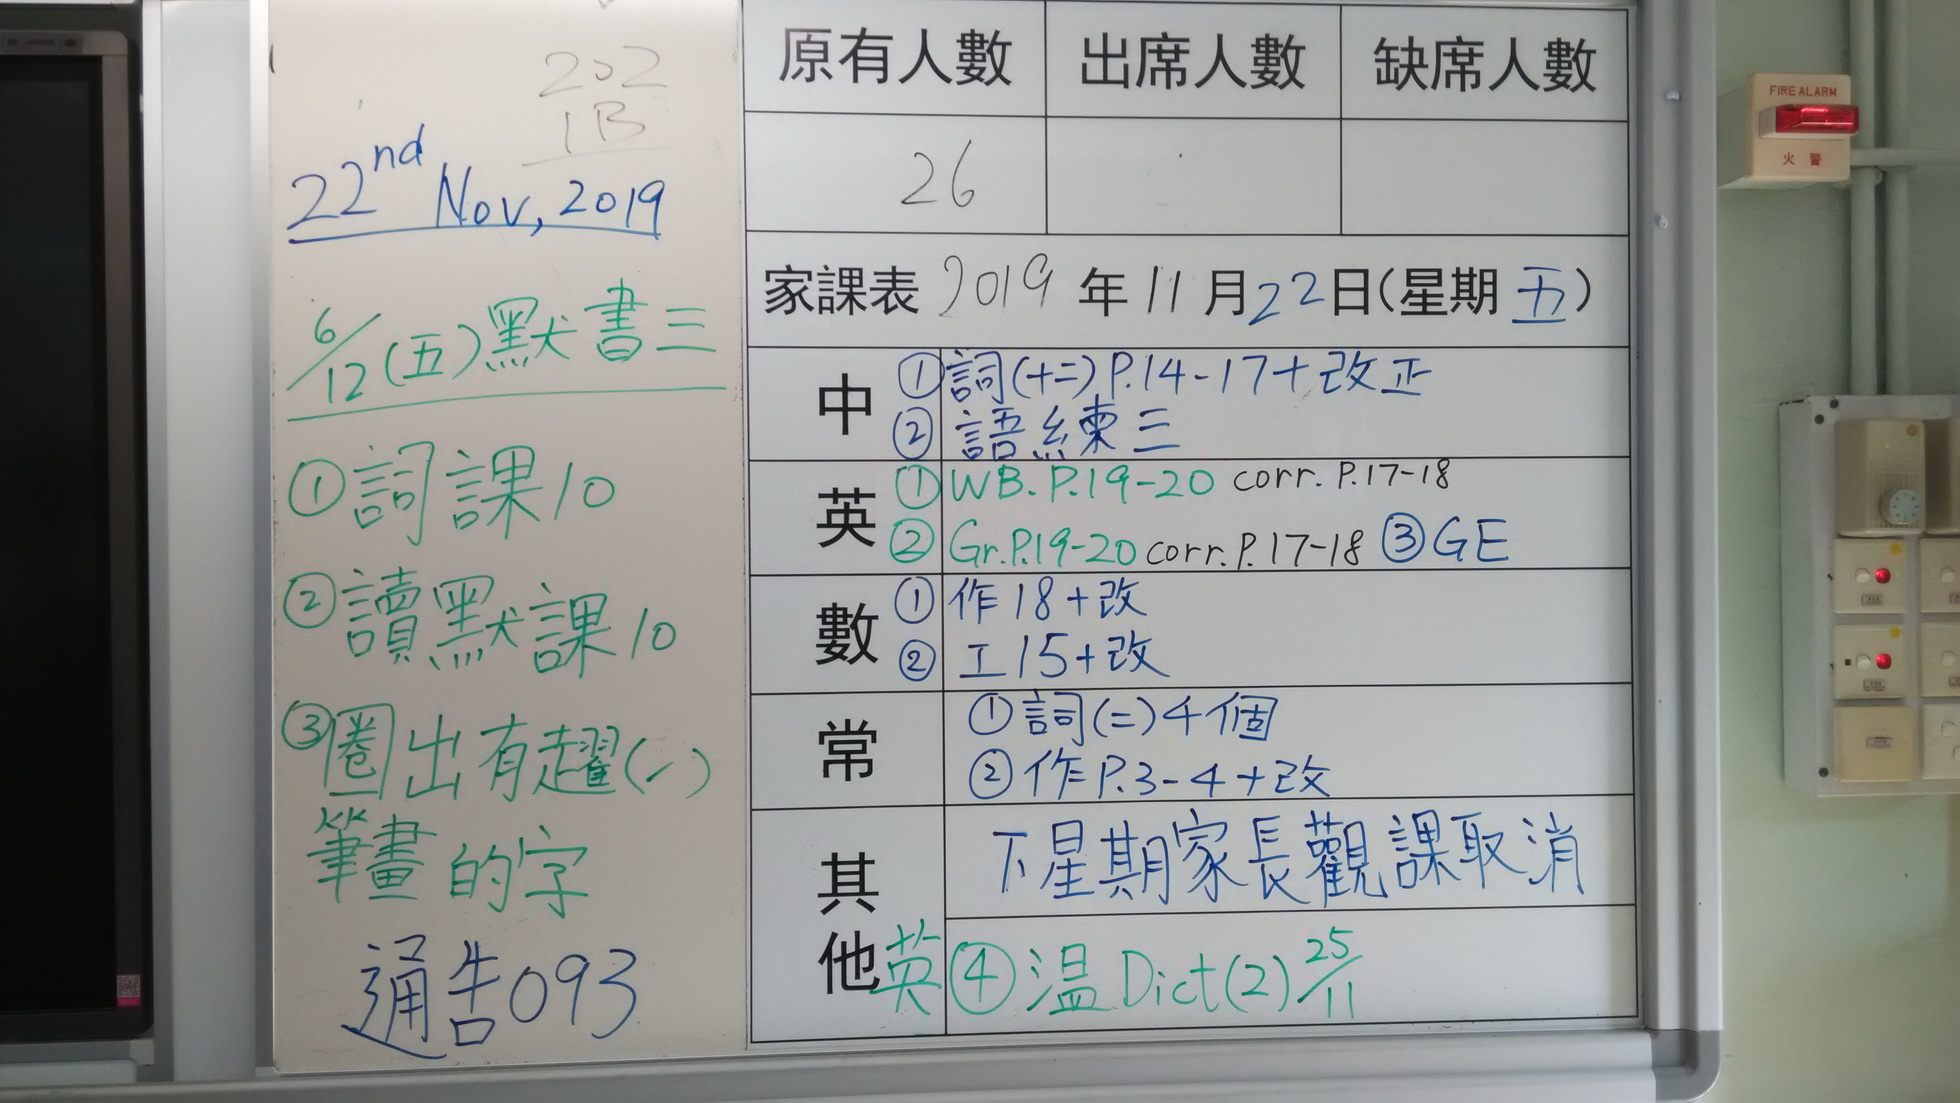 202
1B
22nd Nov, 2019
6/12 (五) 默書三
① 詞課10
② 讀默課10
③ 圈出有趯(㇀)
筆畫的字
通告093
原有人數 出席人數 缺席人數
26
家課表 2019 年 11 月 22 日(星期 五)
中 ① 詞(十二) P.14-17+改正
② 語練三
英 ① WB. P.19-20 corr. P.17-18
② Gr.P.19-20 corr. P.17-18 ③ GE
數 ① 作18+改
② 工15+改
常 ① 詞(二)4個
② 作P.3-4+改
其他 下星期家長觀課取消
英 ④ 溫 Dict(2) 25/11
FIRE ALARM
火警